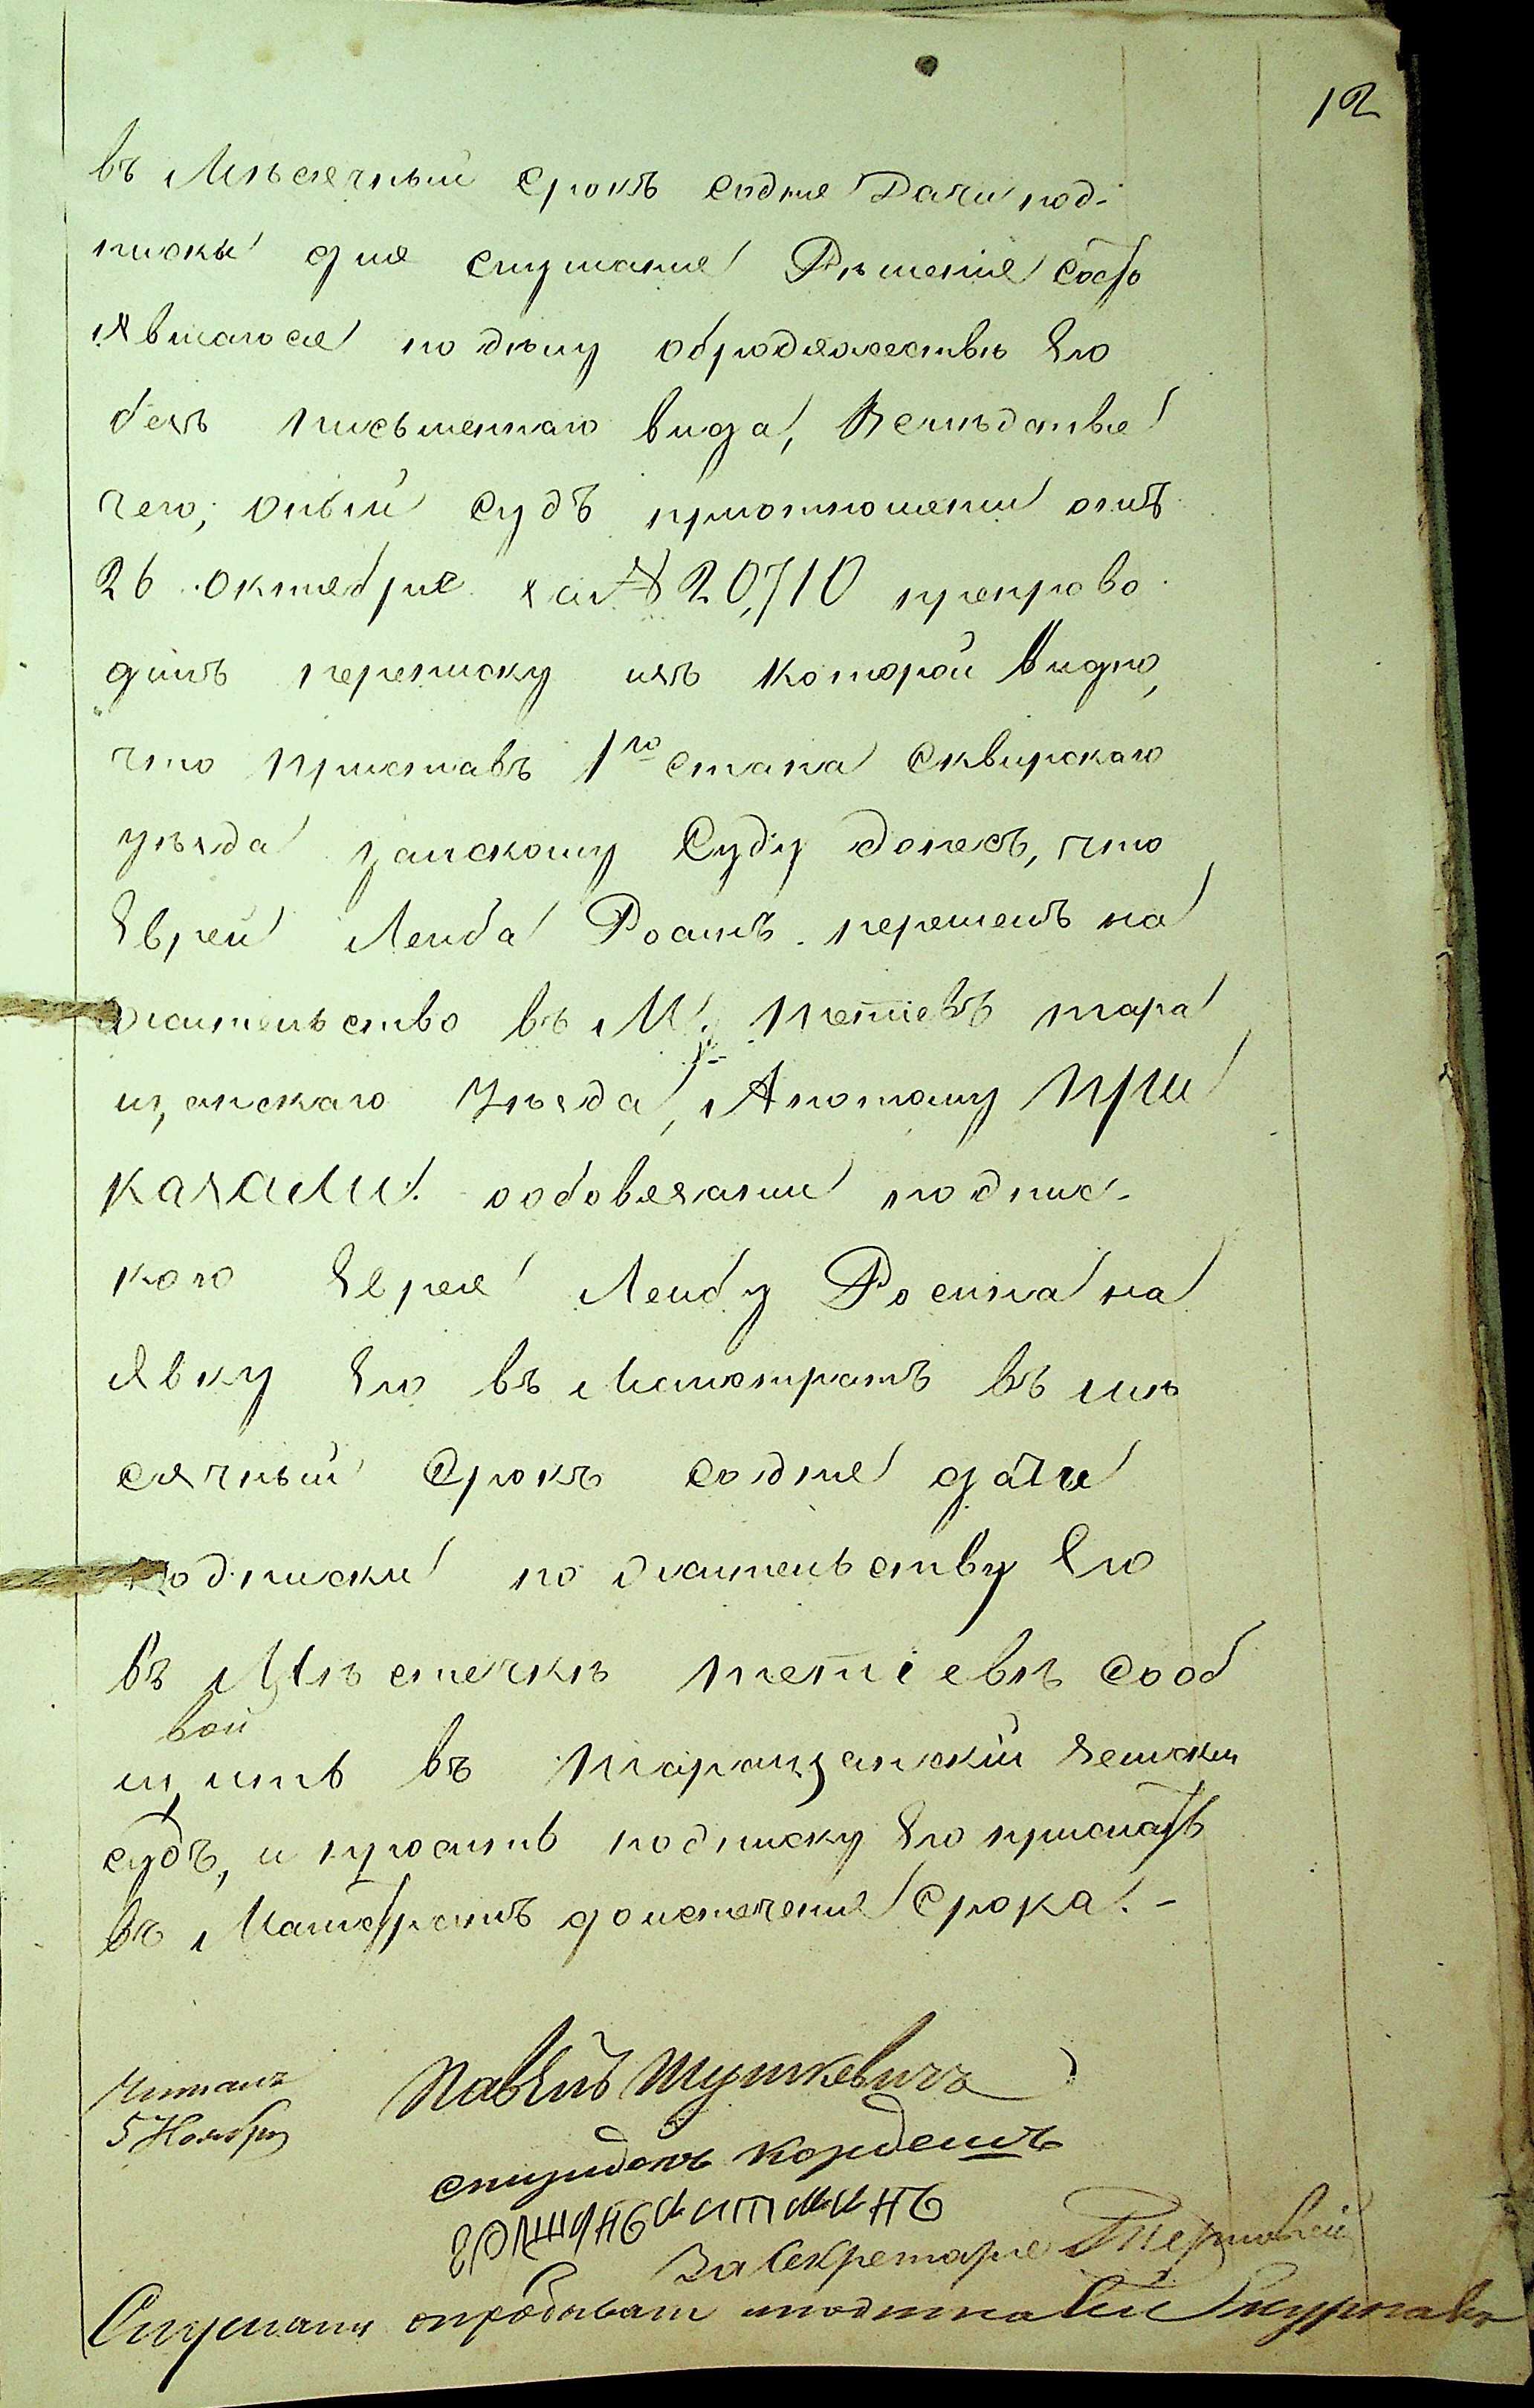 12
въ Мѣсячный срокъ содня Дачи под-
писки для слушанія Рѣшенія состо
явшагося подѣлу обродяжествѣ Его
безъ письменнаго вида, Вслѣдствіе
чего, оный Судъ приотношеніи отъ
26 Октября за № 20,710 препрово
дилъ переписку изъ которой видно,
что Приставъ 1го стана Сквирскаго
уѣзда Земскому Суду донесъ, что
Еврей Лейба перешелъ на
жительство въ М. Тетіевъ тара
щанскаго Уѣзда, Апотому При
казали: ообовязаніи подпис-
кою Еврея Лейбу на
Явку Его въ Магистратъ въ мѣ
сячный Срокъ содня дачи
подписки по жительству Его
въ Мѣстечкѣ тетіевѣ Сооб
щить въ Таращанскій Земскій
судъ, и просить подписку Его прислать
въ Магистратъ доистеченія Срока. -
Читалъ
5 Ноября
Павелъ
спиридонъ
За Секретаря